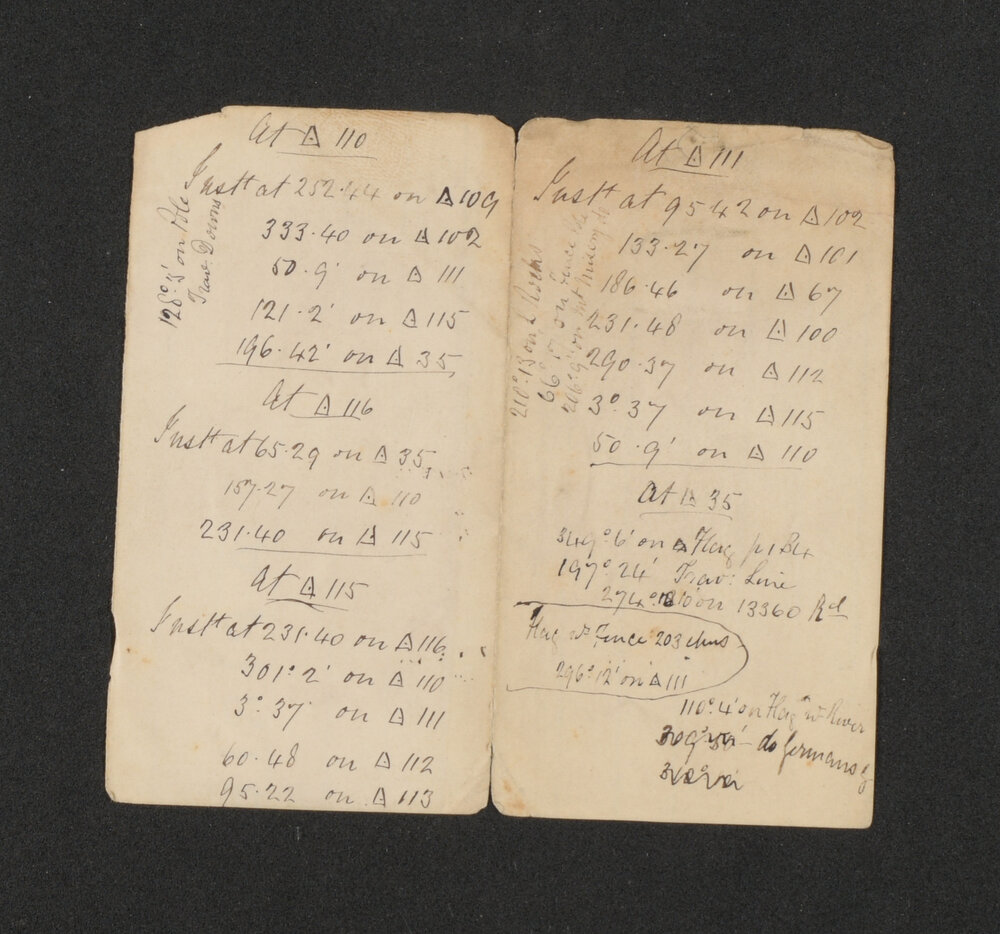 At △ 110
Instt at 252.44 on △ 109
333.40 on △ 102
50.9' on △ 111
121.2' on △ 115
196.42' on △ 35
128°.3' on Pole
Trav. Downs
At △ 116
Instt at 65.29 on △ 35
157.27 on △ 110
231.40 on △ 115
At △ 115
Instt at 231.40 on △ 116
301°.2' on △ 110
3°.37 on △ 111
60.48 on △ 112
95.22 on △ 113
At △ 111
Instt at 95.42 on △ 102
133.27 on △ 101
186.46 on △ 67
231.48 on △ 100
290.37 on △ 112
3°.37 on △ 115
50.9' on △ 110
210°.13 on Rocks
66°.5 on fence
266°.9' on Hut
At △ 35
349°.6' on △ Flag
197°.24' Trav: Line
274° on 13360 Rd
Flag Fence 203 chns
296°.12' on △ 111
110°.4' on Flag River
do Germans